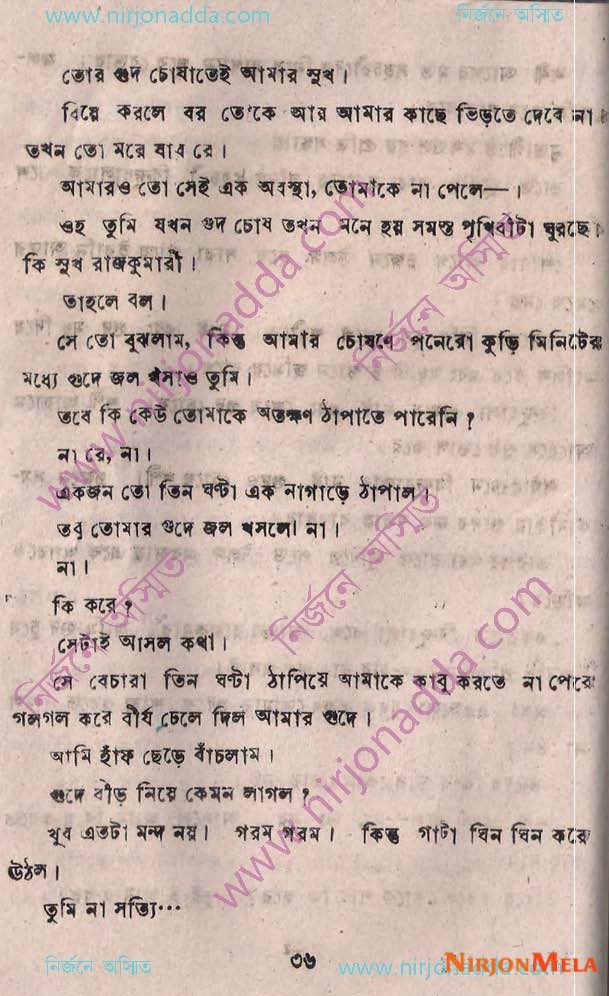 www.nirjonadda.com নির্জনে অস্মিত
তোর গুদ চোষাতেই আমার সুখ।
বিয়ে করলে বর তোকে আর আমার কাছে ভিড়তে দেবে না।
তখন তো মরে যাব রে।
আমারও তো সেই এক অবস্থা, তোমাকে না পেলে—।
ওহ তুমি যখন গুদ চোষ তখন মনে হয় সমস্ত পৃথিবীটা ঘুরছে।
কি সুখ রাজকুমারী।
তাহলে বল।
সে তো বুঝলাম, কিন্তু আমার চোষণে পনেরো কুড়ি মিনিটের
মধ্যে গুদে জল খসাও তুমি।
তবে কি কেউ তোমাকে অতক্ষণ ঠাপাতে পারেনি?
না রে, না।
একজন তো তিন ঘণ্টা এক নাগাড়ে ঠাপাল।
তবু তোমার গুদে জল খসলো না।
না।
কি করে?
সেটাই আসল কথা।
সে বেচারা তিন ঘণ্টা ঠাপিয়ে আমাকে কাবু করতে না পেরে
গলগল করে বীর্য ঢেলে দিল আমার গুদে।
আমি হাঁফ ছেড়ে বাঁচলাম।
গুদে বীর্য নিয়ে কেমন লাগল?
খুব এতটা মন্দ নয়। গরম গরম। কিন্তু গাটা ঘিন ঘিন করে
উঠল।
তুমি না সত্যি···
৩৬
নির্জনে অস্মিত www.nirjonadda.com
NIRJONMELA